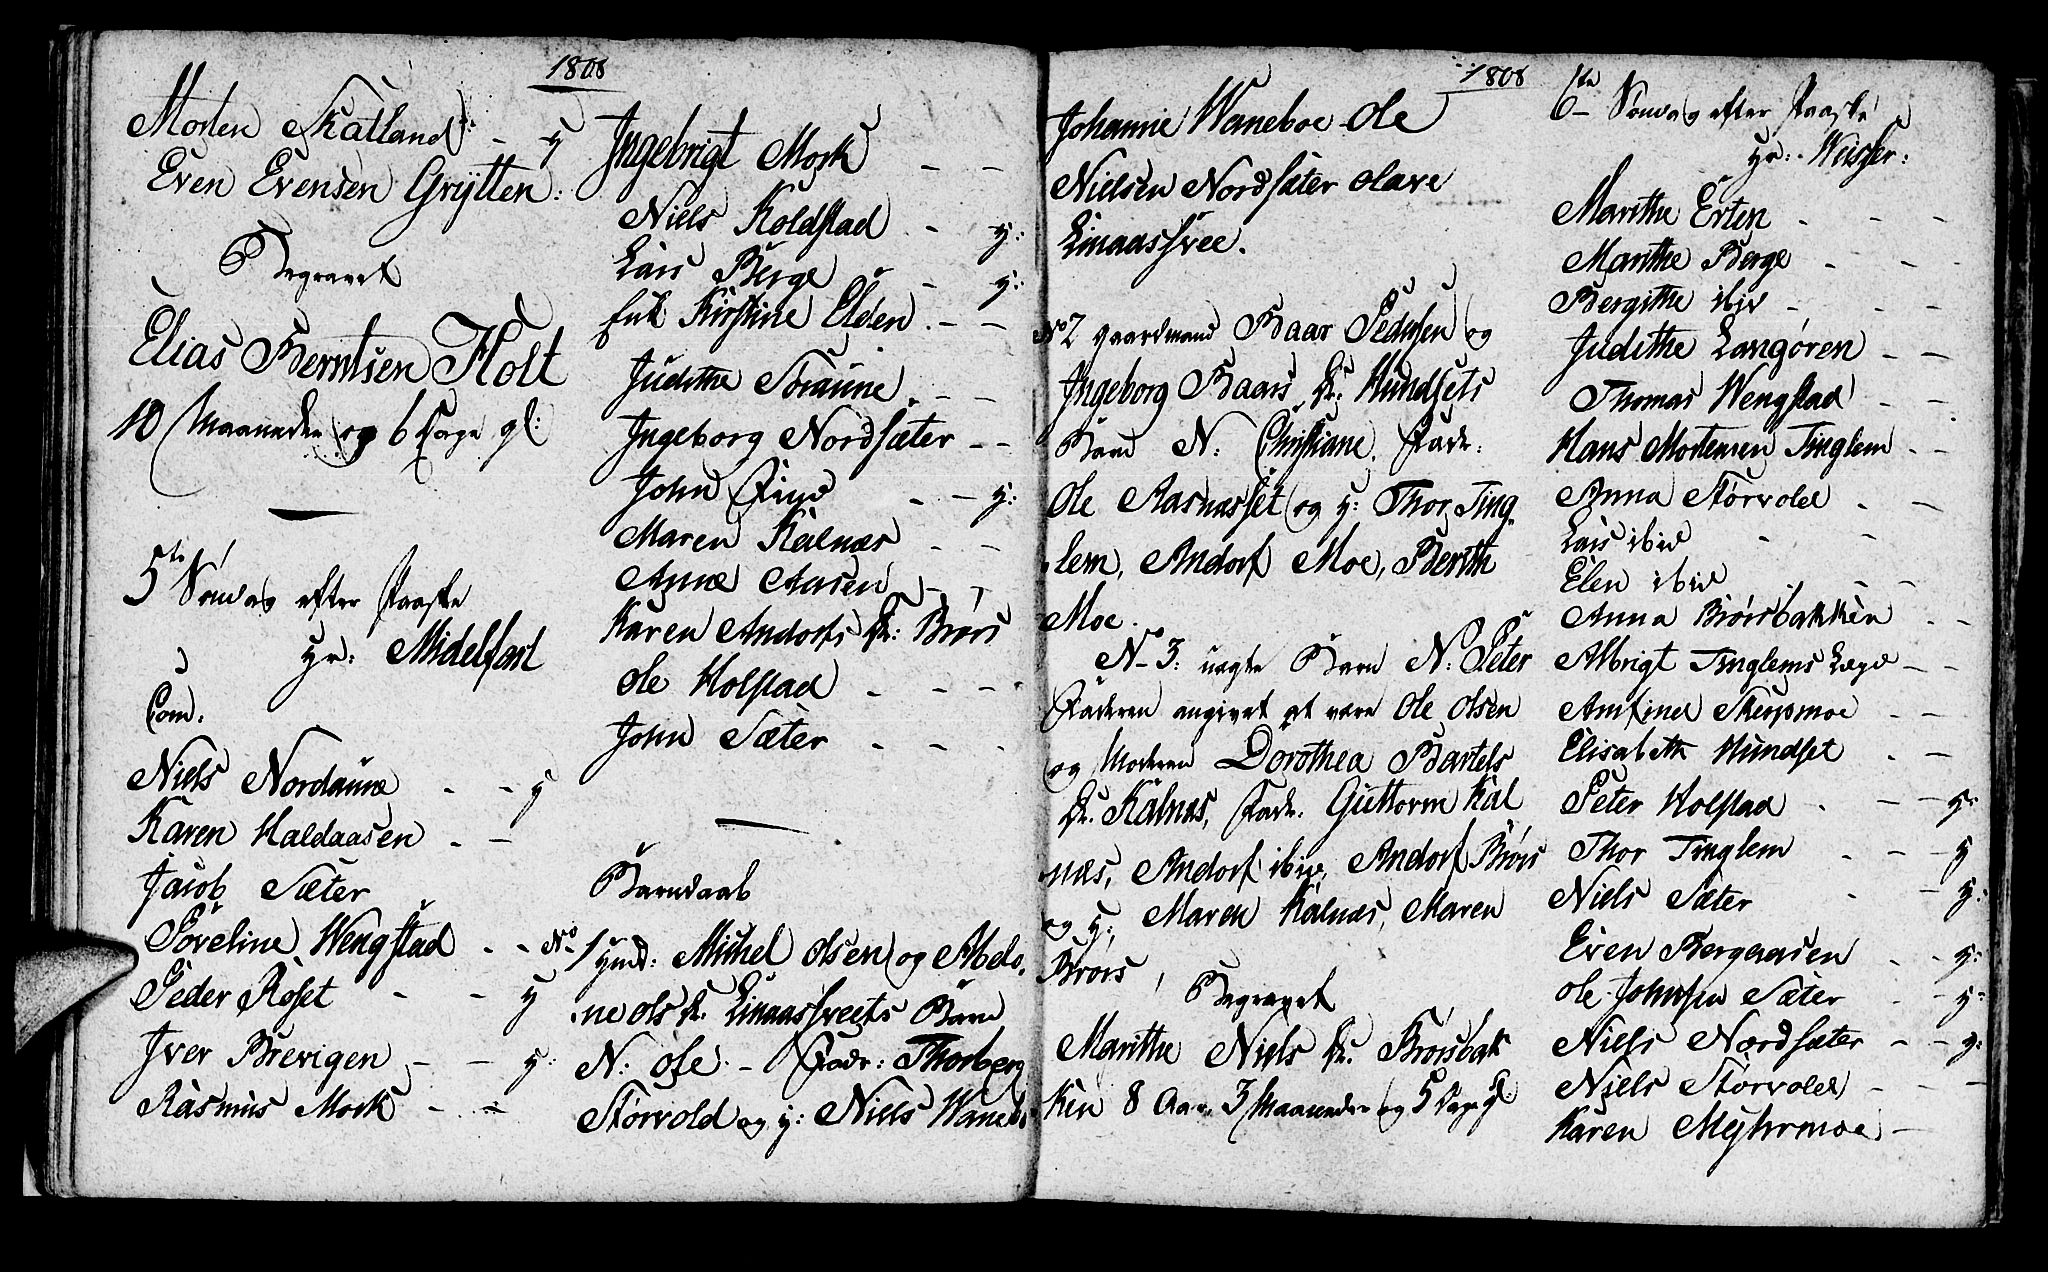 1808
Morten Skatland - y
Even Evensen Grÿtten:
Begravet
Elias Berntsen Holt
10 Maaneder og 6 Dage gl:
5te Søndag efter Paaske
Hr: Midelfart
Com.
Niels Nordaune - - y
Karen Haldaasen - -
Jacob Sæter
Søreline Wengstad - -
Peder Röset - - y
Iver Brevigen - - y:
Rasmus Mork - -
Ingebrigt Mork - -
Niels Koldstad - y:
Lars Berge - y:
Kirstine Elden. - -
Judithe Straune. - -
Ingeborg Nordsæter - -
John Fines - - y:
Maren Kalnæs - -
Anne Aasen - -
Karen Andorfs Dr: Brørs
Ole Holstad - - -
John Sæter - - -
Barndaab
No 1 Hmd: Michel Olsen og Abelo-
ne Ols Dr. Linaassveets Barn
N: Ole. - Fadr: Thorberg
Størvold og y: Niels Waneb.
1808
Johanne Waneboe Ole
Nielsen Nordsæter Olave
Linaassvee.
No 2 Gaardmand Baar Pedersen og
Ingeborg Baars Dr: Hundsets
Barn N: Christiane. Fadr:
Ole Aasnæsset og y: Thor Ting-
lem, Andorf Moe, Berith
Moe.
No 3: uægte Barn N: Peter
Faderen angivet at være Ole Olsen
og Moderen Dorothea Bartels
Dr. Kalnæs, Fadr: Guttorm Kal
næs, Andorf ibid, Andorf Brørs
og y: Maren Kalnæs, Maren
Brørs,
Begravet
Marithe Niels Dr. Brørsbak
ken 8 Aar, 3 Maaneder og 5 Dage gl:
6te Søndag efter Paaske
Hr: Weisser:
Marithe Erten - - -
Marithe Berge - - -
Bergithe ibid - - -
Judithe Langøren - -
Thomas Wengstad - -
Hans Mortensen Tinglem - -
Anna Størvold - -
Lars ibid - -
Elen ibid - -
Anna Brørsbakken - -
Albrigt Tinglems Lægd - -
Amfind Skeipsmoe - -
Elisabeth Hundset - -
Peter Holstad - - y:
Thor Tinglem - - y
Niels Sæter - - y:
Even Bergaasen - - y:
Ole Johnsen Sæter - - y:
Niels Nordsæter - - y:
Niels Størvold - - -
Karen Myhrmoe -